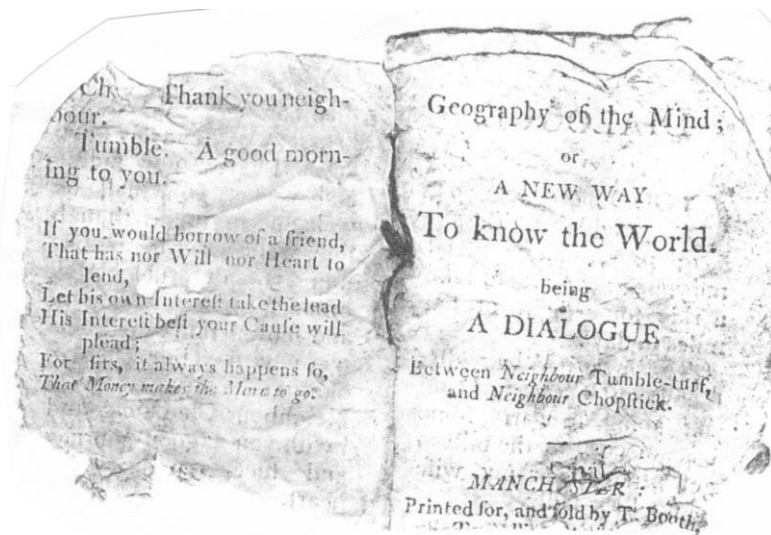 Ch. Thank you neigh-
bour.
Tumble. A good morn-
ing to you.
If you would borrow of a friend,
That has nor Will nor Heart to
lend,
Let his own Intereſt take the lead
His Intereſt beſt your Cauſe will
plead;
For ſirs, it always happens ſo,
That Money makes the Mare to go.
Geography of the Mind;
or
A NEW WAY
To know the World.
being
A DIALOGUE
Between Neighbour Tumble-turf,
and Neighbour Chopſtick.
MANCHESTER:
Printed for, and ſold by T. Booth,